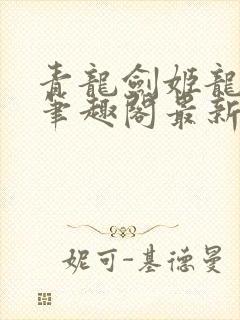 青龍劍姬龍
筆趣閣最新
妮可-基德曼